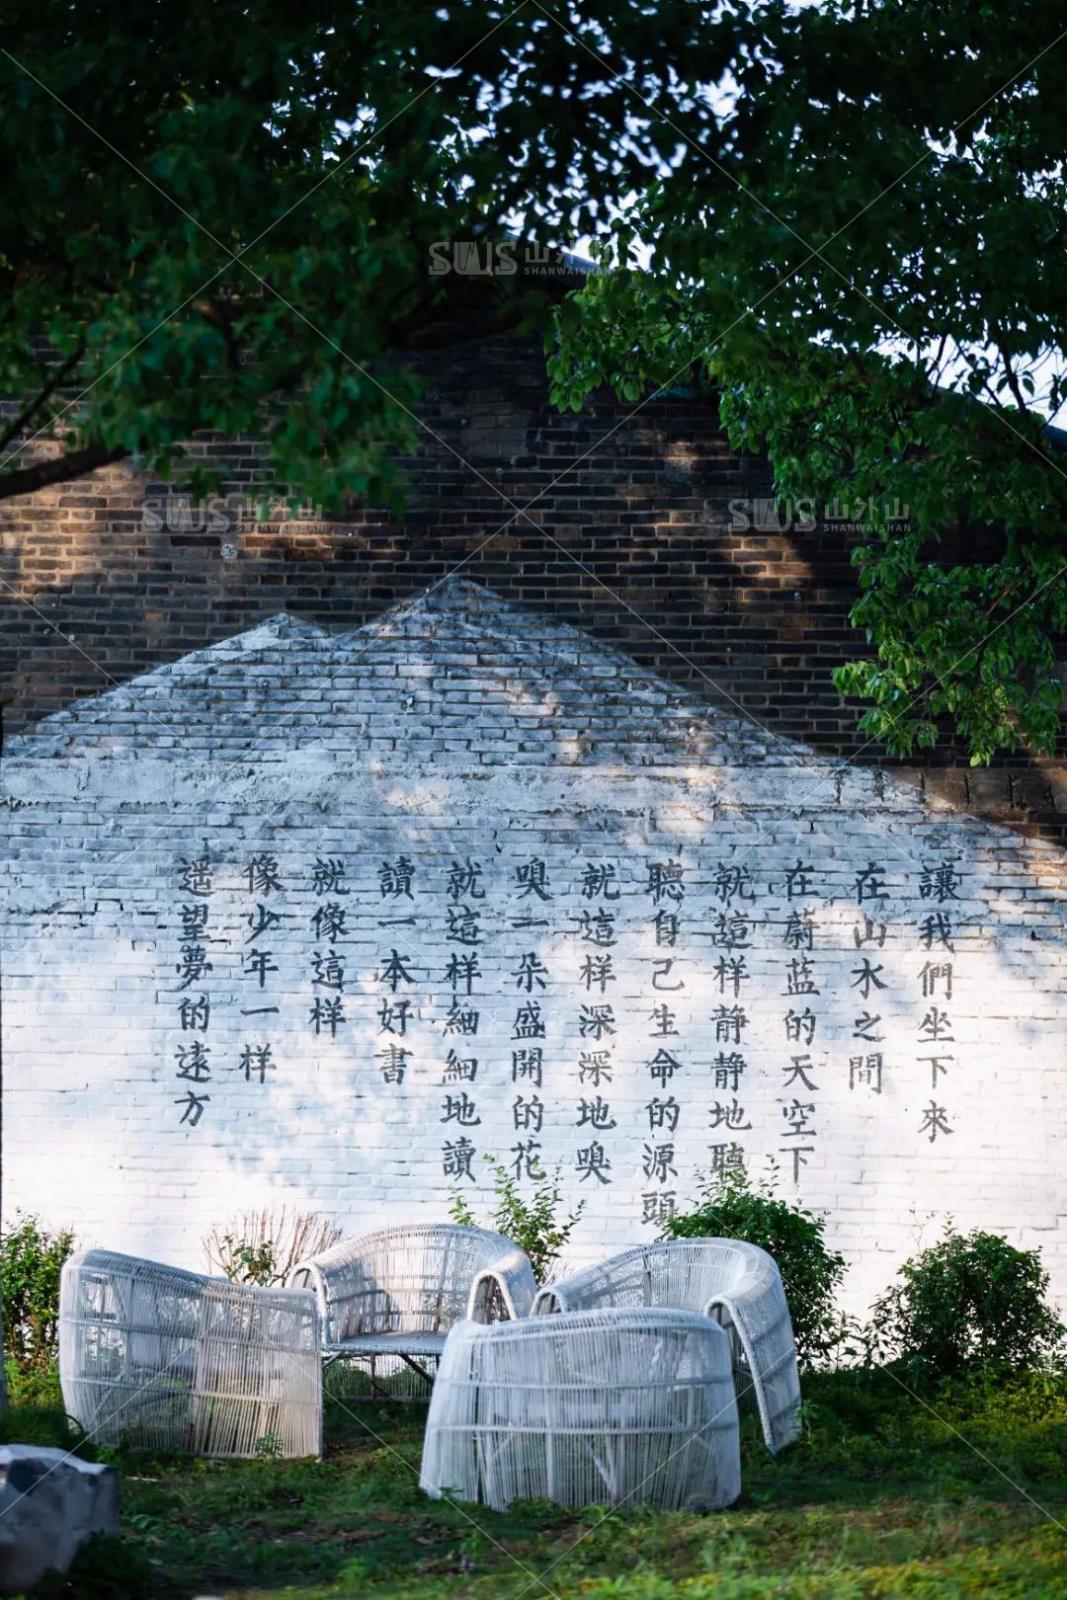 讓我們坐下來
在山水之間
在蔚蓝的天空下
就這样静静地聽
聽自己生命的源頭
就這样深深地嗅
嗅一朵盛開的花
就這样細細地讀
讀一本好書
就像這样
像少年一样
遥望夢的遠方
SWJS 山外山
SHANWAISHAN
SWJS 山外山
SHANWAISHAN
SWJS 山外山
SHANWAISHAN